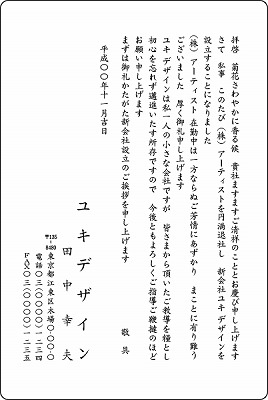 拝啓 菊花さわやかに香る候 貴社ますますご清祥のこととお慶び申し上げます
さて 私事 このたび（株）アーティストを円満退社し 新会社ユキデザインを
設立することになりました
（株）アーティスト在勤中は一方ならぬご芳情にあずかり まことに有り難う
ございました 厚く御礼申し上げます
ユキデザインは私一人の小さな会社ですが 皆さまから頂いたご教導を糧とし
初心を忘れず邁進いたす所存ですので 今後ともよろしくご指導ご鞭撻のほど
お願い申し上げます
まずは御礼かたがた新会社設立のご挨拶を申し上げます
敬具
平成〇〇年十一月吉日
ユキデザイン
田中幸夫
〒135-8480 東京都江東区木場〇-〇-〇
電話〇三(〇〇〇〇)一二三四
FAX〇三(〇〇〇〇)一二三五